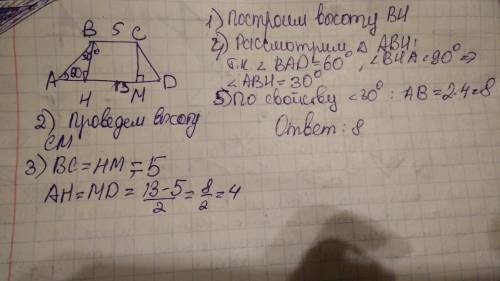 B 5 C
30°
A 60° 13 D
H M
2) Проведем высоту
СМ
3) BC = HM = 5
AH = MD = 13-5/2 = 8/2 = 4
1) Построим высоту BH
4) Рассмотрим △ ABH:
т.к ∠BAD = 60°, ∠BHA = 90° ⇒
∠ABH = 30°
5) По свойству ∠30°: AB = 2·4 = 8
Ответ: 8